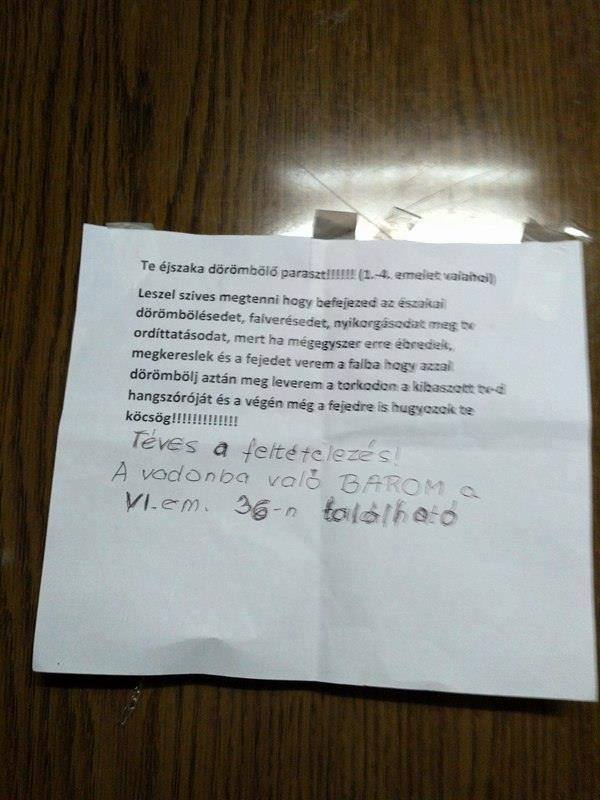 Te éjszaka dörömbölő paraszt!!!!!! (1.-4. emelet valahol)
Leszel szíves megtenni hogy befejezed az északai
dörömbölésedet, falverésedet, nyikorgásodat meg tv
ordíttatásodat, mert ha mégegyszer erre ébredek,
megkereslek és a fejedet verem a falba hogy azzal
dörömbölj aztán meg leverem a torkodon a kibaszott tv-d
hangszóróját és a végén még a fejedre is hugyozok te
köcsög!!!!!!!!!!!!!
Téves a feltételezés!
A vadonba való BAROM a
VI.em. 36-n található